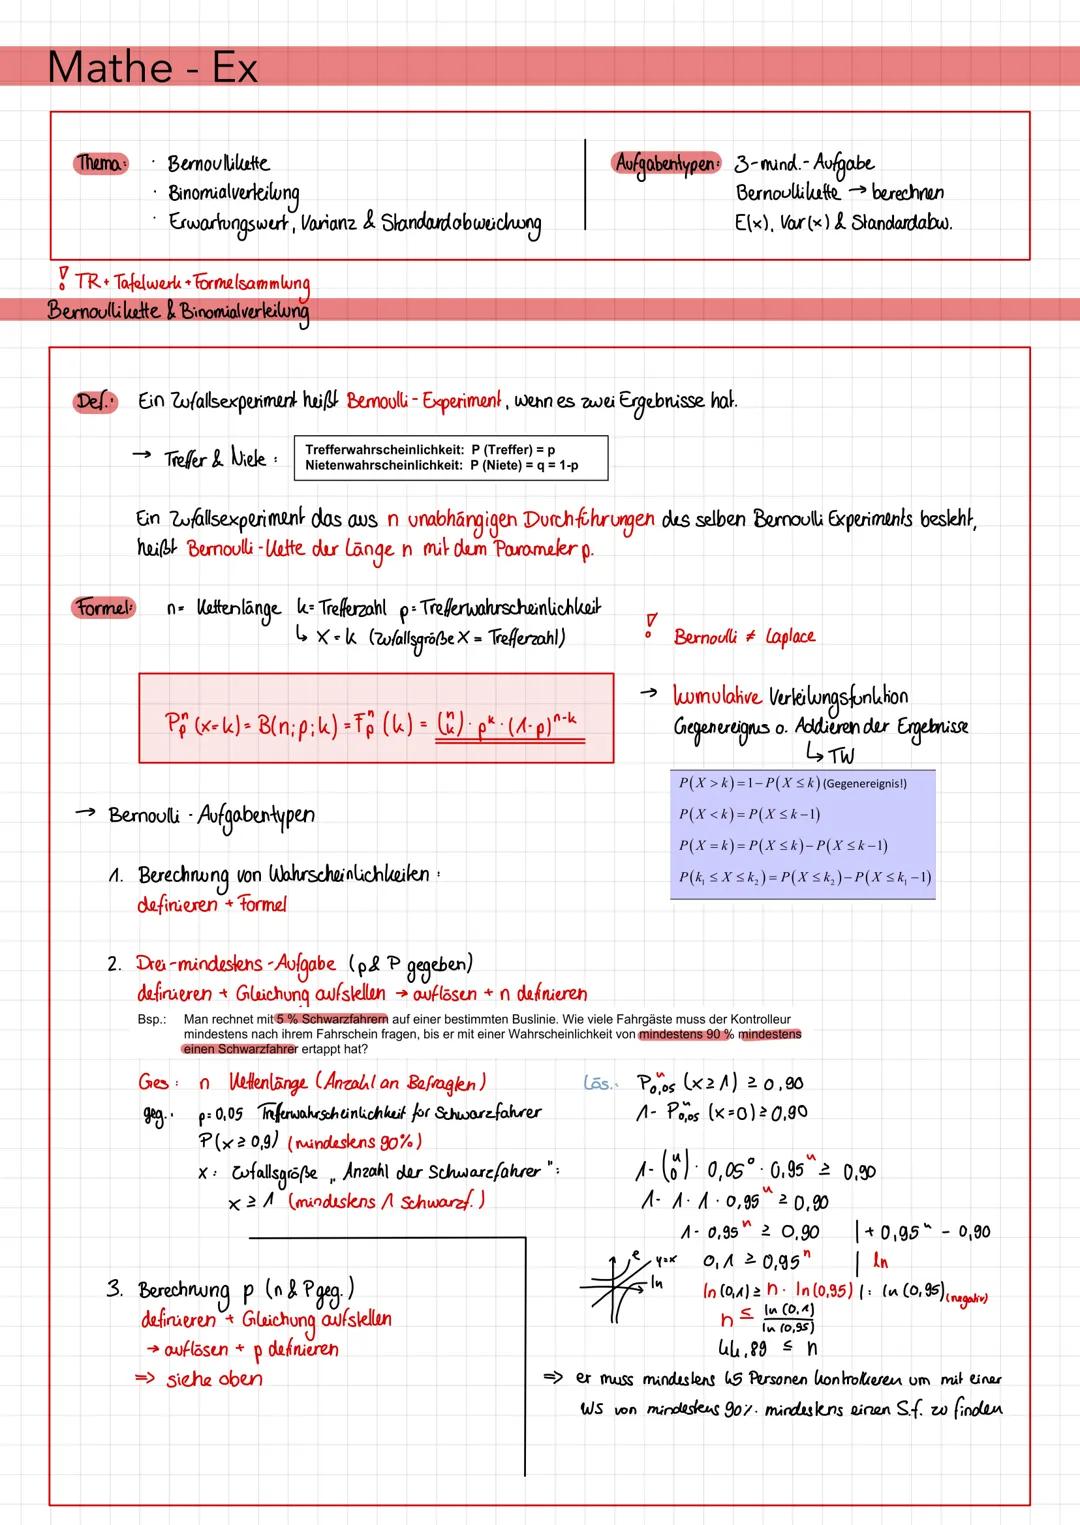 Mathe - Ex
Thema:
· Bernoullikette
· Binomialverteilung
· Erwartungswert, Varianz & Standardabweichung
Aufgabentypen: 3-mind.-Aufgabe
Bernoullikette → berechnen
E(x), Var(x) & Standardabw.
! TR + Tafelwerk + Formelsammlung
Bernoullikette & Binomialverteilung
Def.: Ein Zufallsexperiment heißt Bernoulli-Experiment, wenn es zwei Ergebnisse hat.
→ Treffer & Niete:
Trefferwahrscheinlichkeit: P (Treffer) = p
Nietenwahrscheinlichkeit: P (Niete) = q = 1-p
Ein Zufallsexperiment das aus n unabhängigen Durchführungen des selben Bernoulli Experiments besteht,
heißt Bernoulli-Kette der Länge n mit dem Parameter p.
Formel: n = Kettenlänge k = Trefferzahl p = Trefferwahrscheinlichkeit
↳ X = k (Zufallsgröße X = Trefferzahl)
P_p^n (x=k) = B(n;p;k) = F_p^n (k) = (n k) · p^k · (1-p)^n-k
! Bernoulli ≠ Laplace
→ kumulative Verteilungsfunktion
Gegenereignis o. Addieren der Ergebnisse
↳ TW
P(X > k) = 1 − P(X ≤ k) (Gegenereignis!)
P(X < k) = P(X ≤ k − 1)
P(X = k) = P(X ≤ k) − P(X ≤ k − 1)
P(k₁ ≤ X ≤ k₂) = P(X ≤ k₂) − P(X ≤ k₁ − 1)
→ Bernoulli - Aufgabentypen
1. Berechnung von Wahrscheinlichkeiten:
definieren + Formel
2. Drei-mindestens-Aufgabe (p & P gegeben)
definieren + Gleichung aufstellen → auflösen + n definieren
Bsp.: Man rechnet mit 5 % Schwarzfahrern auf einer bestimmten Buslinie. Wie viele Fahrgäste muss der Kontrolleur
mindestens nach ihrem Fahrschein fragen, bis er mit einer Wahrscheinlichkeit von mindestens 90 % mindestens
einen Schwarzfahrer ertappt hat?
Ges: n Kettenlänge (Anzahl an Befragten)
geg.: p = 0,05 Trefferwahrscheinlichkeit für Schwarzfahrer
P(x ≥ 0,9) (mindestens 90%)
x: Zufallsgröße „Anzahl der Schwarzfahrer":
x ≥ 1 (mindestens 1 Schwarzf.)
Lös.: P_0,05^n (x ≥ 1) ≥ 0,90
1 - P_0,05^n (x=0) ≥ 0,90
1 - (n 0) · 0,05^0 · 0,95^n ≥ 0,90
1 - 1 · 1 · 0,95^n ≥ 0,90
1 - 0,95^n ≥ 0,90 | + 0,95^n - 0,90
0,1 ≥ 0,95^n | ln
e y=x
ln
ln(0,1) ≥ n · ln(0,95) | : ln(0,95) (negativ)
n ≤ ln(0,1) / ln(0,95)
44,89 ≤ n
⇒ er muss mindestens 45 Personen kontrollieren um mit einer
WS von mindestens 90% mindestens einen S.f. zu finden
3. Berechnung p (n & P geg.)
definieren + Gleichung aufstellen
→ auflösen + p definieren
⇒ siehe oben